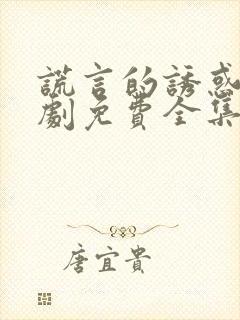 謊言的誘惑
劇免費全集
唐宜貴